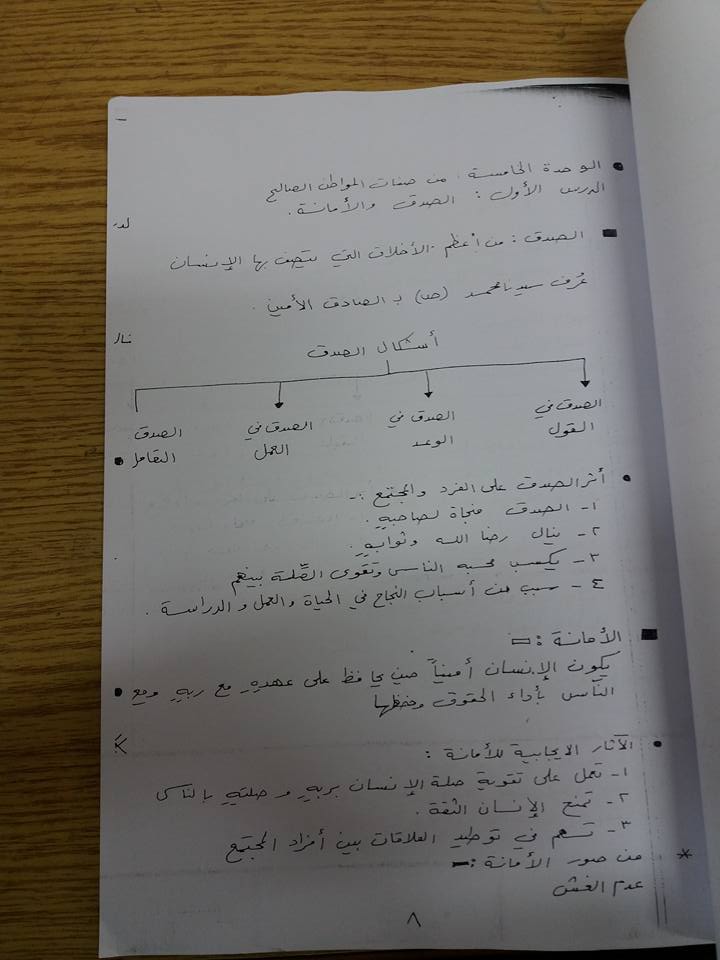 الوحدة الخامسة : من صفات المواطن الصالح
الدرس الأول : الصدق والأمانة .
الصدق : من أعظم الأخلاق التي يتصف بها الإنسان
عُرف سيدنا محمد (ص) بـ الصادق الأمين .
أشكال الصدق
الصدق في القول
الصدق في الوعد
الصدق في العمل
الصدق التعامل
أثر الصدق على الفرد والمجتمع :-
١- الصدق منجاة لصاحبهِ .
٢- ينال رضا الله وثوابهِ .
٣- يكسب محبه الناس وتقوى الصِّلة بينهم
٤- سبب من أسباب النجاح في الحياة والعمل والدراسة .
الأمانة :-
يكون الإنسان أميناً حين يحافظ على عهدهِ مع ربهِ ومع
الناس بأداء الحقوق وحفظها
الآثار الايجابية للأمانة :
١- تعمل على تقوية صلة الإنسان بربهِ وصلتهِ بالناس
٢- تمنح الإنسان الثقة .
٣- تسهم في توطيد العلاقات بين أفراد المجتمع
* من صور الأمانة :-
عدم الغش
٨